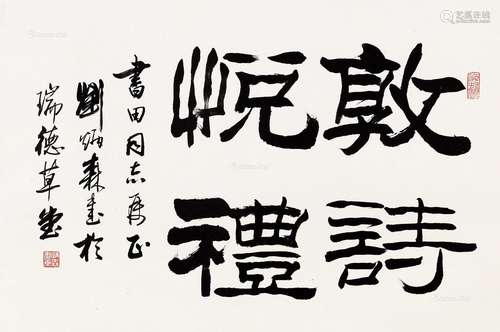 敦詩
悦禮
書田同志屬正
劉炳森書於
瑞德草堂